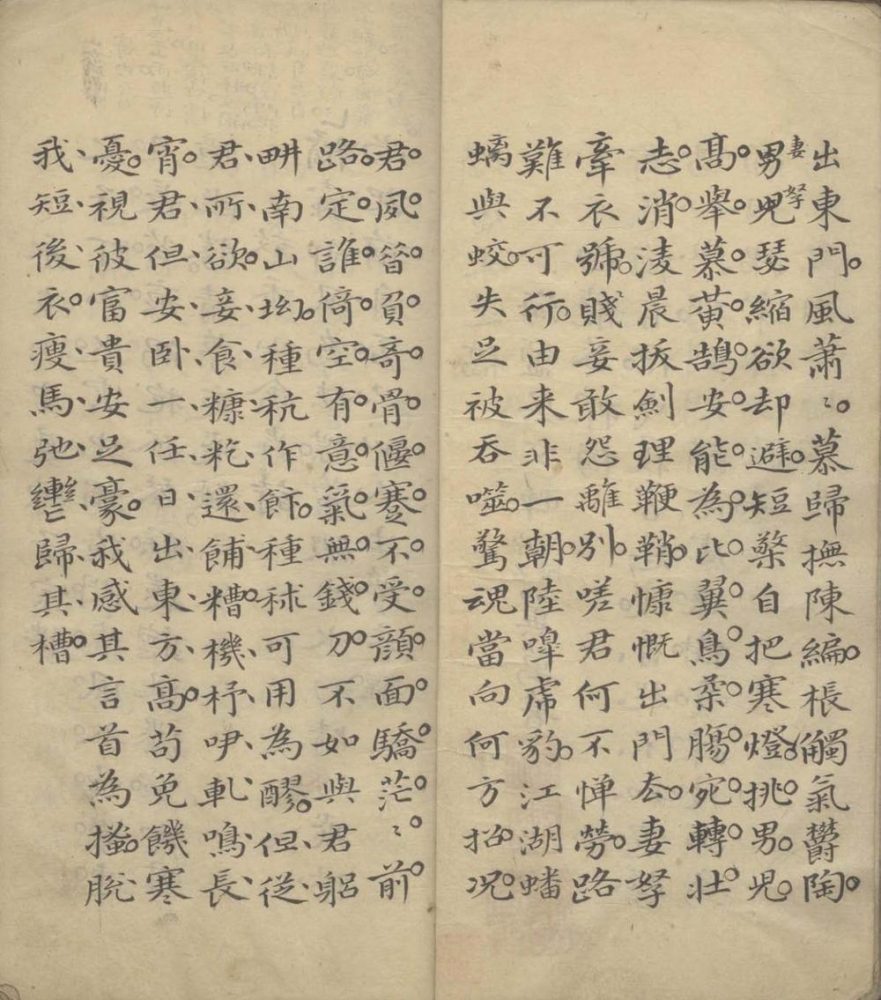 出東門風蕭〻慕歸撫陳編棖觸氣鬱陶
妻孥
男兒瑟縮欲却避短檠自把寒燈挑男兒
高舉慕黃鵠安能為比翼鳥柔腸宛轉壯
志消淩晨拔劍理鞭鞘慷慨出門去妻孥
牽衣號賤妾敢怨離別嗟君何不憚勞路
難不可行由來非一朝陸嘷虎豹江湖蟠
螭與蛟失足被吞噬驚魂當向何方招况
君夙昔負奇骨偃蹇不受顏面驕茫〻前
路定誰倚空有意氣無錢刀不如與君躬
畊南山坳種秔作飰種秫可用為醪但從
君所欲妾食糠籺還餔糟機杼咿軋鳴長
宵君但安卧一任日出東方高苟免饑寒
憂視彼富貴安足豪我感其言首為搔脫
我短後衣瘦馬弛轡歸其槽